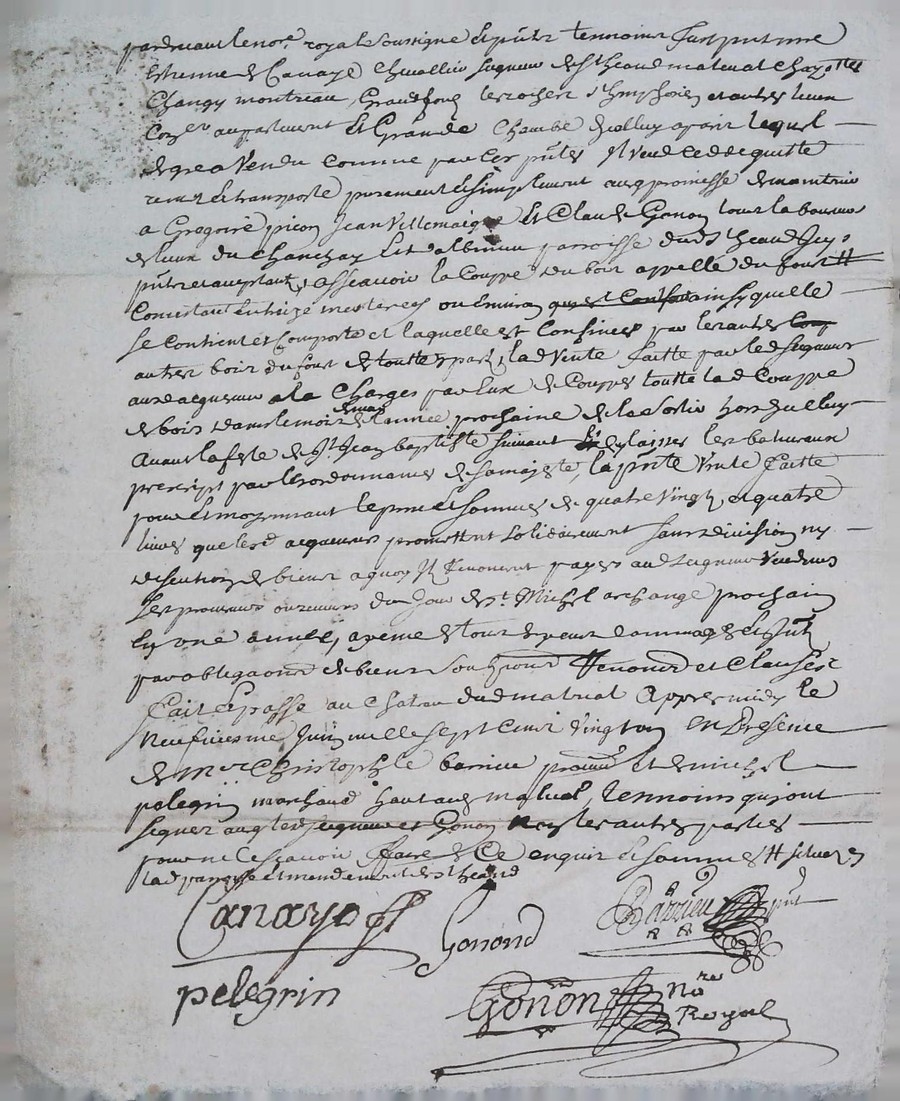 pardevant le no.re royal soussigne et pñtz temmoins fust pnt mre
Estienne de Canaye Chevallier seigneur de St heand matenat
Changy montreau, Grandfond les rochers et autres lieux
Con.er au parlement Et Grande Chambre lequel
de gre a Vendu comme par ces pñtes Il vend cedde quitte
remet et transporte purement et simplement avec promesse de maintenir
a Gregoire picon Jean Villemaigne Et Claude Gonon tous laboureurs
des lieux du Chanchay Et d'albinieu parroisse dud St heand Icy
pñts et acceptant, assçavoir la Couppe du bois appellé du four #
Consistant en treize mesterees ou Environ ainsy quelle
se contient et comporte et laquelle est confinée par les autres
autres bois du four de toutte part, lad Vente faitte par led seigneur
auxd acquereurs a la Charges par Eux de Coupper toutte lad Couppe
de bois dans le mois de mars de l'année prochaine et de la sortir hors d'icelluy
avant la feste de St Jean baptiste suivant et dy laisser les baliveaux
prescript par les ordonnances de sa majeste, la pñte Vente faitte
pour Et moyennant le prix et somme de quatre vingt et quatre
livres que lesd acqueurs promettent solidairement sans division ny
discution de biens a quoy Ils renoncent payer aud seigneur Vendeur
du Jour de St Michel archange prochain
En une année, a peine de tous despens dommages Et Intz
par obligaons de biens soubmions Renonons et Clauses
Fait Et passé au Chateau dud matenat appres midy le
Neufviesme Juin mille sept cent vingt en Presence
de mre Christophle barrieu et de michel
pelegrin marchand tenmoins qui ont
signez avec led seigneur et Gonon Non les autres parties
pour ne le sçavoir faire de Ce enquis Et sommez # situez en
lad paroisse et mandement de St heand
Canaye
Gonond
Barrieu pñt
pelegrin
Gonon No.re
Royal